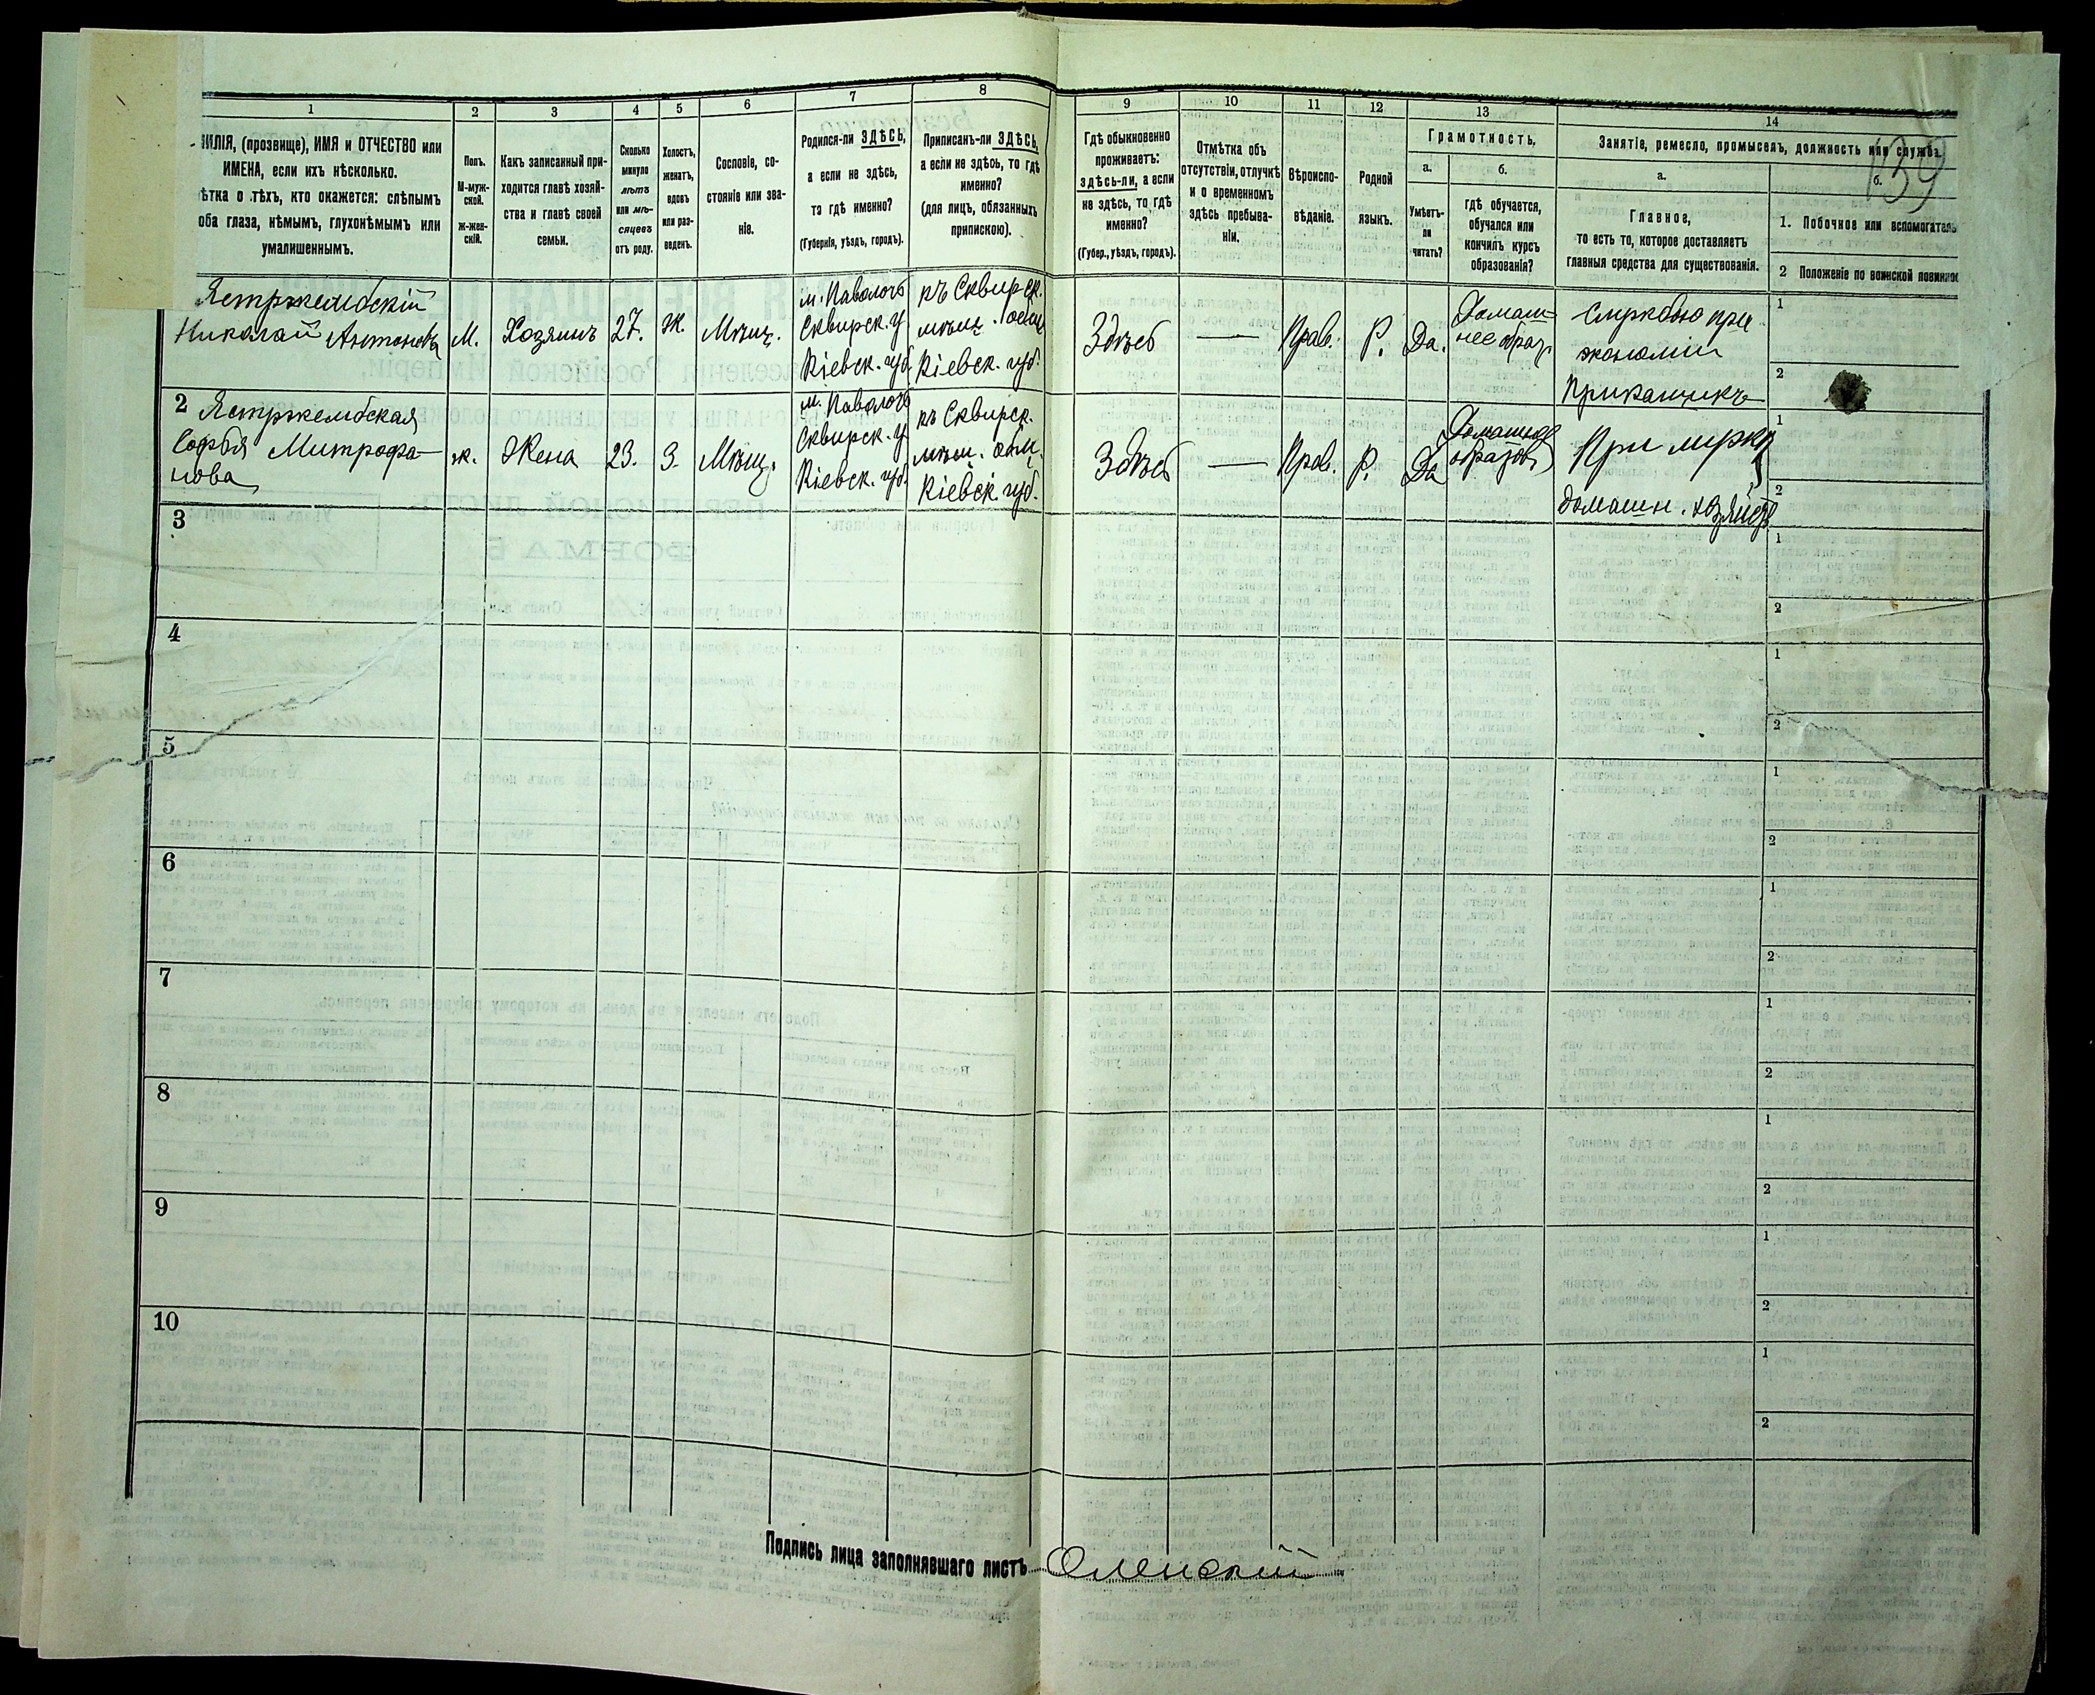 1
2
3
4
5
6
7
8
9
10
11
12
13
14
139
ИЛІЯ, (прозвище), ИМЯ и ОТЧЕСТВО или
ИМЕНА, если ихъ нѣсколько.
ѣтка о тѣхъ, кто окажется: слѣпымъ
оба глаза, нѣмымъ, глухонѣмымъ или
умалишеннымъ.
Полъ.
М-муж-
ской.
Ж-жен-
скій.
Какъ записанный при-
ходится главѣ хозяй-
ства и главѣ своей
семьи.
Сколько
минуло
лѣтъ
или мѣ-
сяцевъ
отъ роду.
Холостъ,
женатъ,
вдовъ
или раз-
веденъ.
Сословіе, со-
стояніе или зва-
ніе.
Родился-ли ЗДѢСЬ,
а если не здѣсь,
то гдѣ именно?
(Губернія, уѣздъ, городъ).
Приписанъ-ли ЗДѢСЬ,
а если не здѣсь, то гдѣ
именно?
(для лицъ, обязанныхъ
припискою).
Гдѣ обыкновенно
проживаетъ:
здѣсь-ли, а если
не здѣсь, то гдѣ
именно?
(Губер., уѣздъ, городъ).
Отмѣтка объ
отсутствіи, отлучкѣ
и о временномъ
здѣсь пребыва-
ніи.
Вѣроиспо-
вѣданіе.
Родной
языкъ.
Грамотность.
а.
Умѣетъ-
ли
читать?
б.
гдѣ обучается,
обучался или
кончилъ курсъ
образованія?
Занятіе, ремесло, промыселъ, должность или служба.
а.
Главное,
то есть то, которое доставляетъ
главныя средства для существованія.
б.
1. Побочное или вспомогатель
2 Положеніе по воинской повинно
Ястржембскій
Николай Антоновъ
М.
Хозяинъ
27.
Ж.
Мѣщ.
м. Паволочь
Сквирск. у
Кіевск. губ
къ Сквирск.
мѣщ. общ
Кіевск. губ.
Здѣсь
—
Прав.
Р.
Да.
Домаш-
нее образ.
Службою при
экономіи
Прикащикъ
1
2
2 Ястржембская
Софья Митрофа-
нова
ж.
Жена
23.
З.
Мѣщ.
м. Паволочь
Сквирск. у
Кіевск. губ.
къ Сквирск.
мѣщ. общ.
Кіевск. губ.
Здѣсь
—
Прав.
Р.
Да
Домашнее
образов
При мужѣ
домашн. хозяйств
1
2
3
1
2
4
1
2
5
1
2
6
1
2
7
1
2
8
1
2
9
1
2
10
1
2
Подпись лица заполнявшаго листъ Оленскій